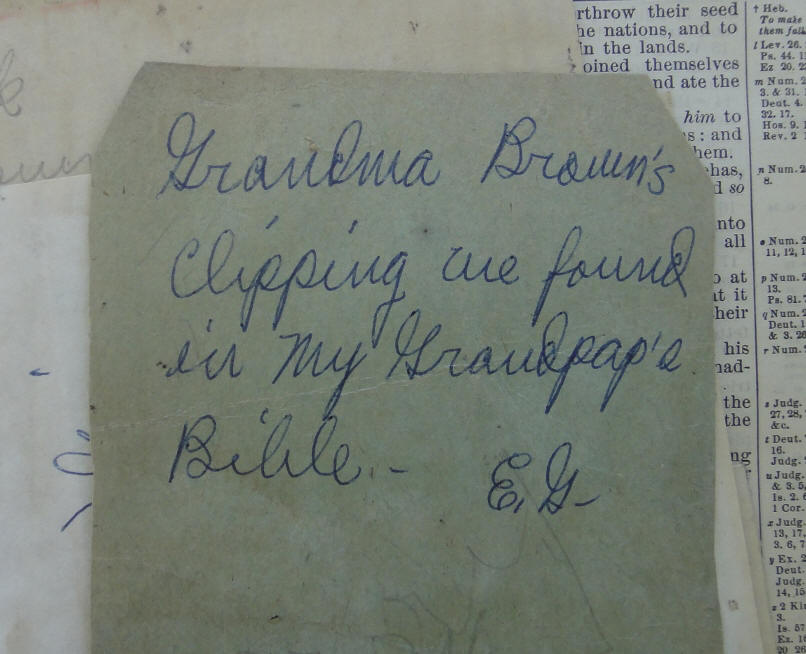 Grandma Brown's
Clipping we found
in my Grandpap's
Bible. -
E.G-
rthrow their seed
he nations, and to
in the lands.
oined themselves
nd ate the
him to
s: and
hem.
has,
d so
nto
all
o at
at it
heir
his
had-
the
the
ng
† Heb.
To make
them fall
l Lev. 26.
Ps. 44. 1
Ez 20. 2
m Num. 2
3. & 31.
Deut. 4.
32. 17.
Hos. 9. 1
Rev. 2
n Num. 2
8.
o Num. 2
11, 12, 1
p Num. 2
13.
Ps. 81. 7
q Num. 2
Deut. 1
& 3. 26
r Num.
s Judg.
27, 28,
&c.
t Deut.
16.
Judg.
u Judg.
& 3. 5,
Is. 2. 6
1 Cor.
x Judg.
13, 17,
3. 6, 7
y Ex. 2
Deut.
Judg.
14, 15
z 2 Ki
3.
Is. 57
Ez. 16
20 26